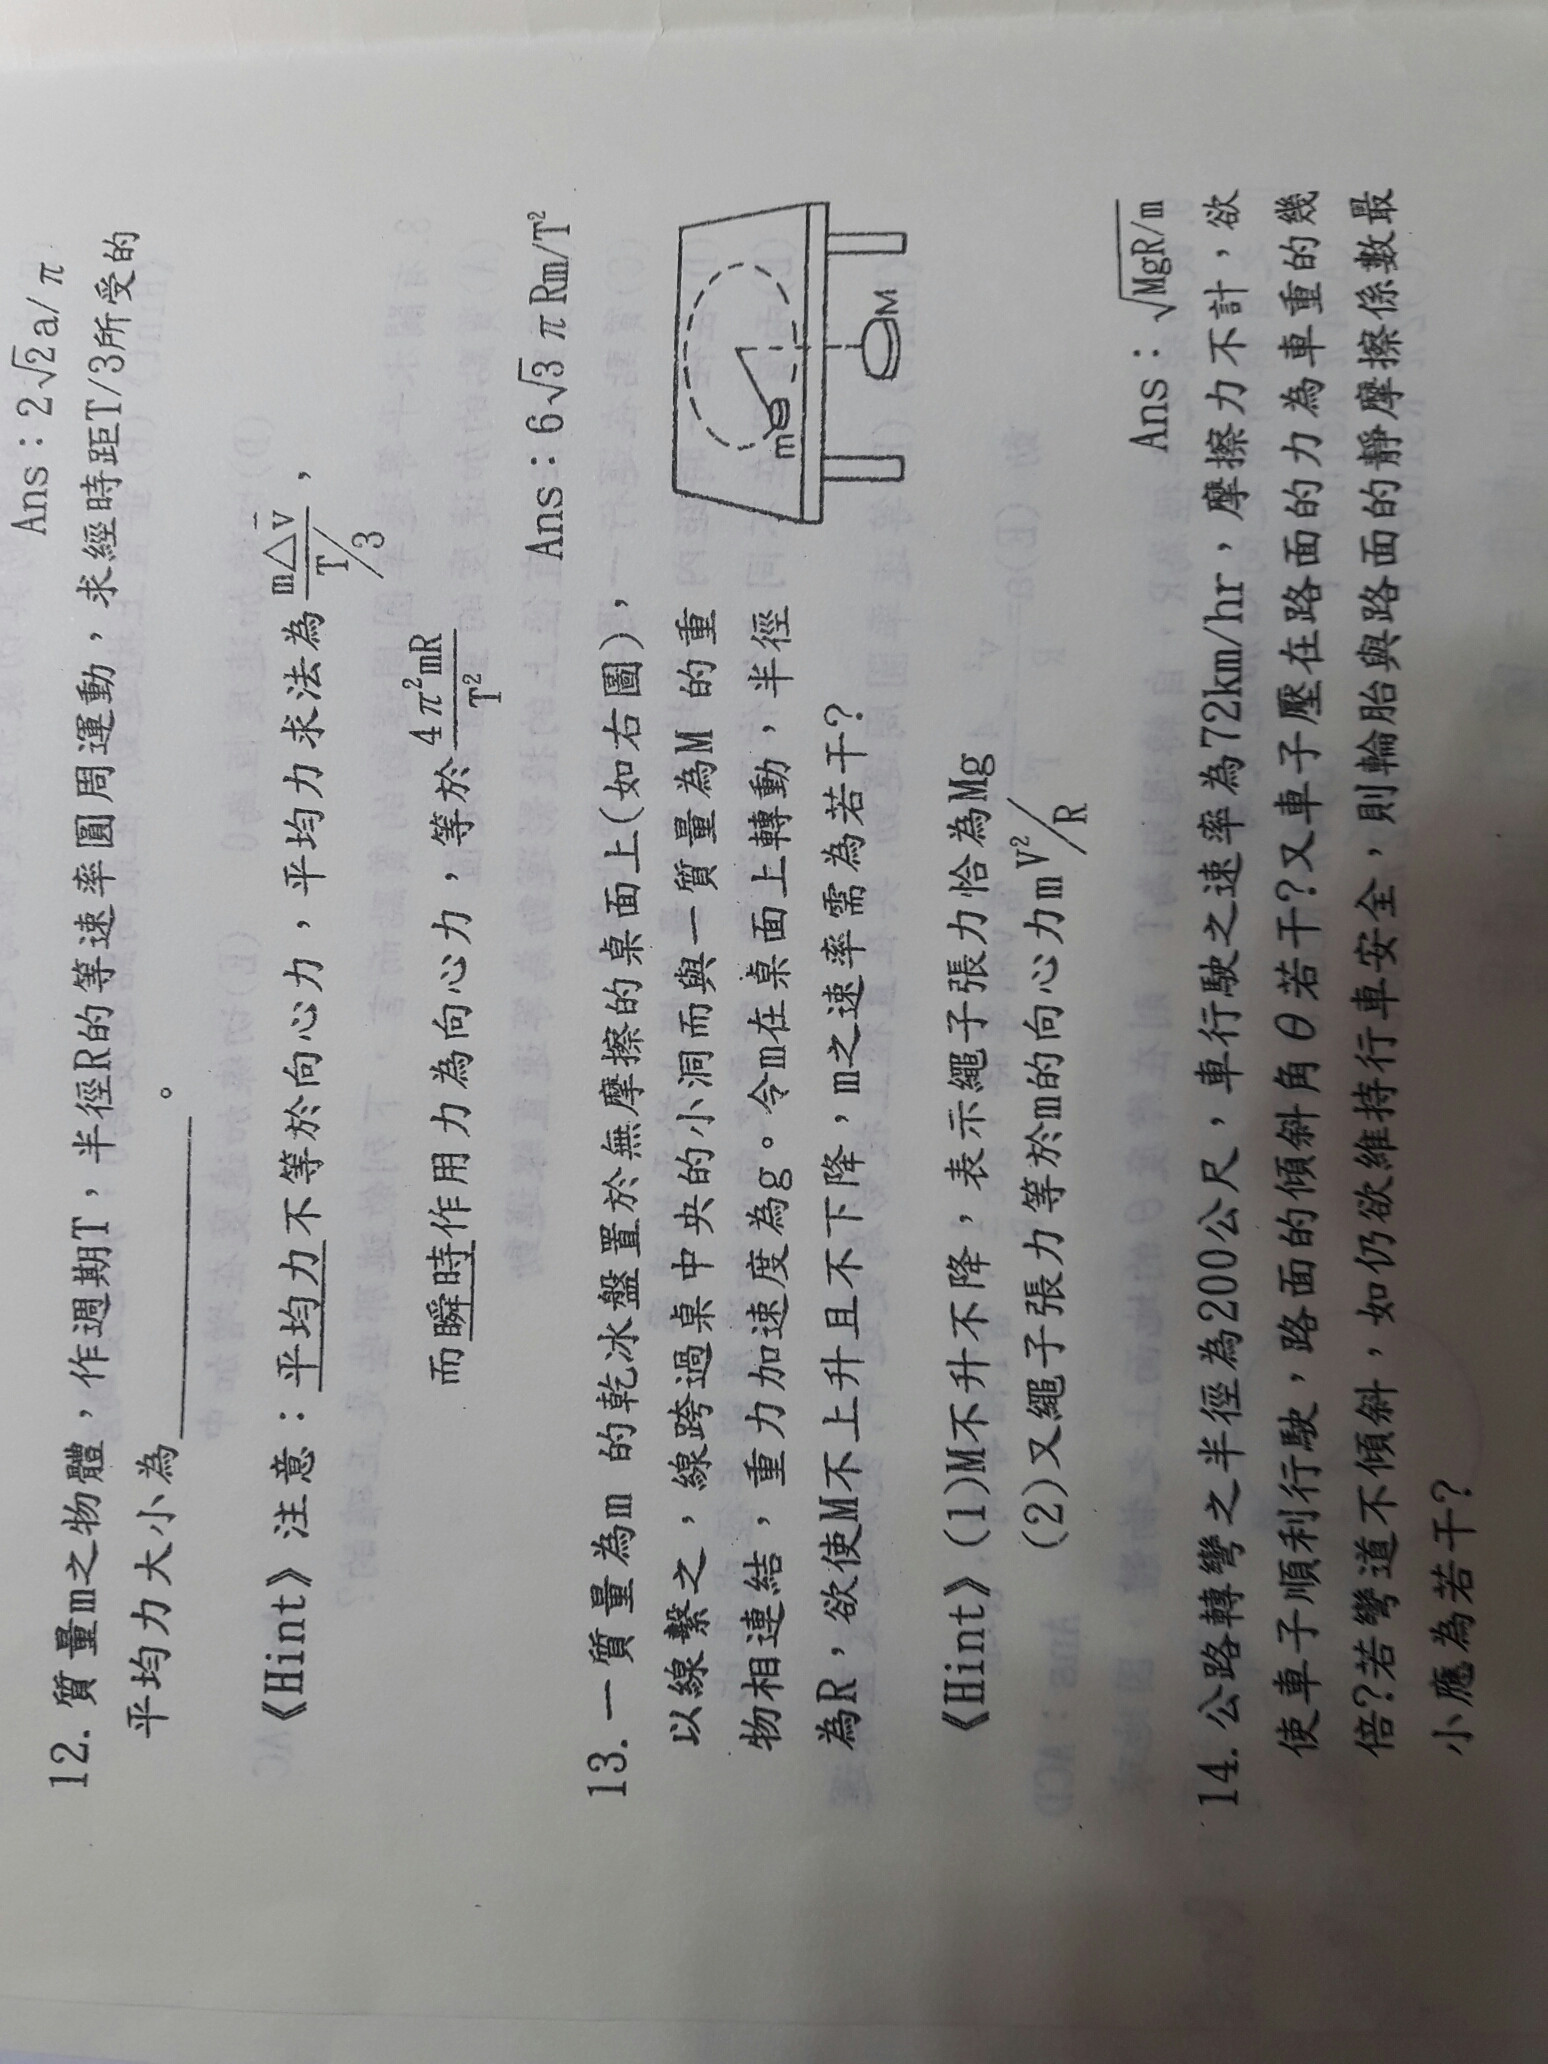 Ans：2√2a/π
12. 質量m之物體，作週期T，半徑R的等速率圓周運動，求經時距T/3所受的
平均力大小為＿＿＿＿＿＿。
《Hint》注意：平均力不等於向心力，平均力求法為 m△v̄/T/3，
而瞬時作用力為向心力，等於 4π²mR/T²
Ans：6√3πRm/T²
13. 一質量為m 的乾冰盤置於無摩擦的桌面上(如右圖)，
以線繫之，線跨過桌中央的小洞而與一質量為M 的重
物相連結，重力加速度為g。令m在桌面上轉動，半徑
為R，欲使M不上升且不下降，m之速率需為若干?
m
M
《Hint》(1)M不升不降，表示繩子張力恰為Mg
(2)又繩子張力等於m的向心力mV²/R
Ans：√MgR/m
14. 公路轉彎之半徑為200公尺，車行駛之速率為72km/hr，摩擦力不計，欲
使車子順利行駛，路面的傾斜角θ若干?又車子壓在路面的力為車重的幾
倍?若彎道不傾斜，如仍欲維持行車安全，則輪胎與路面的靜摩擦係數最
小應為若干?